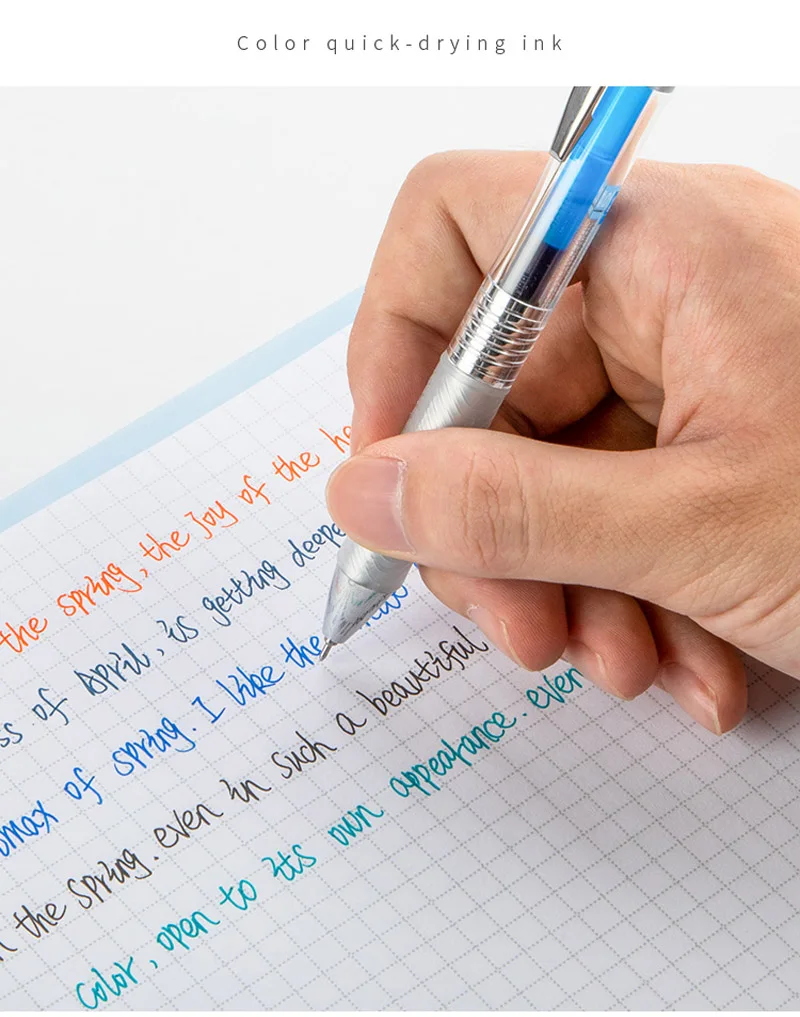 Color quick-drying ink
the spring, the joy of the
of April, is getting
of spring. I like the
the spring. even in such a beautiful
color, open to its own appearance. even